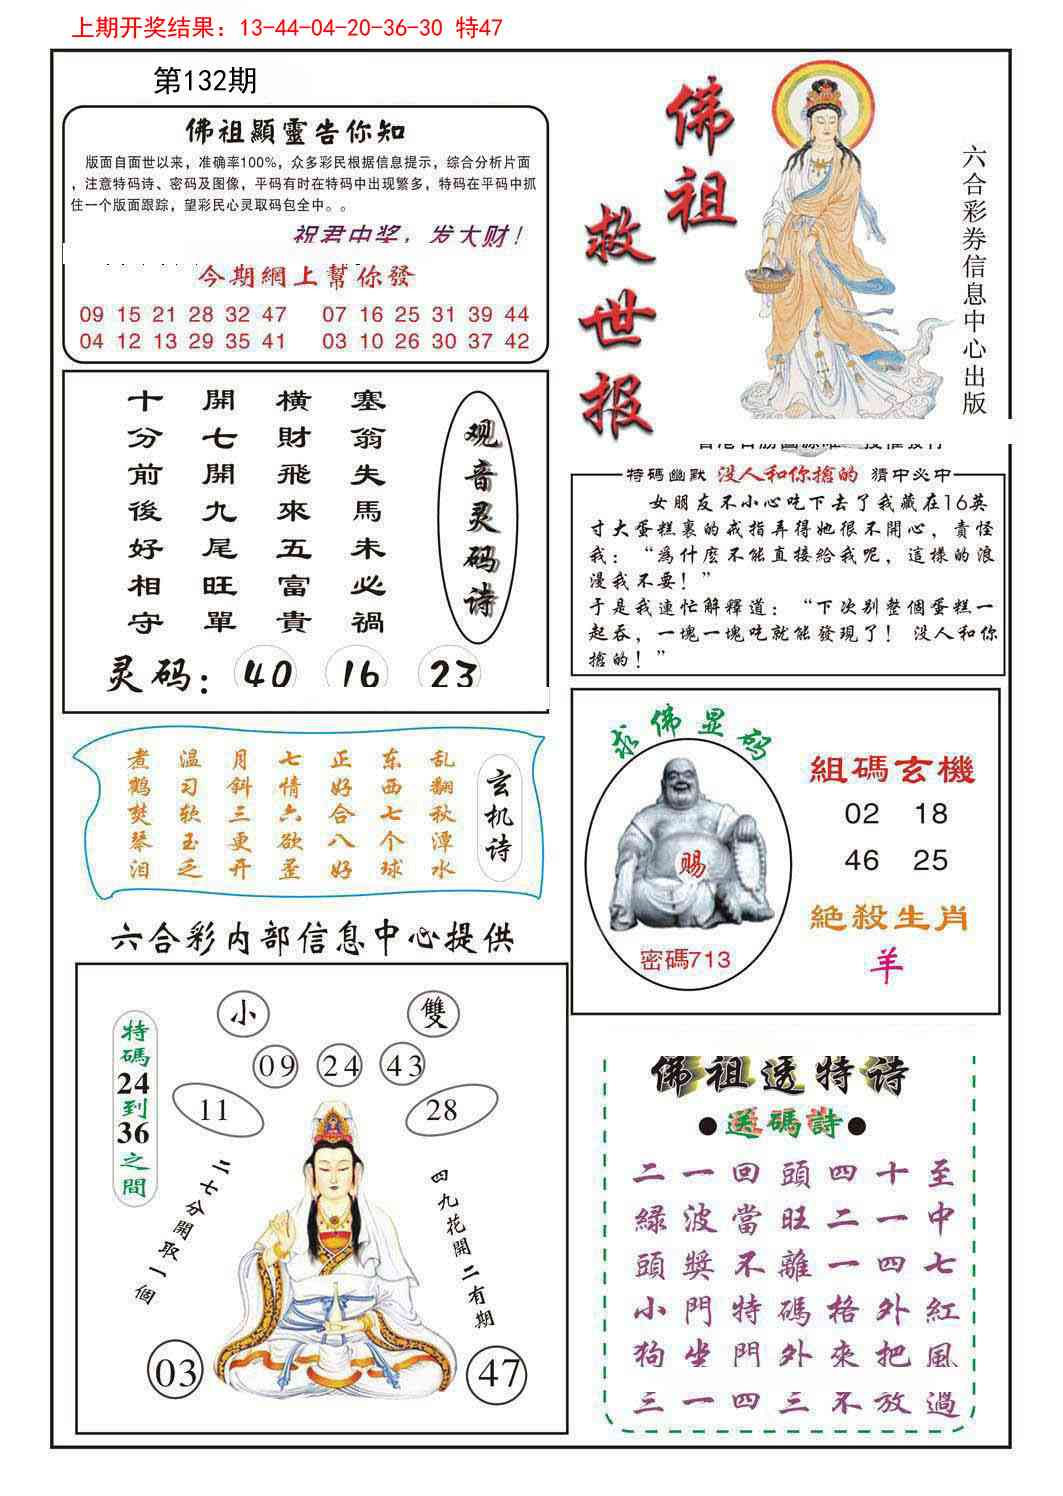 上期开奖结果：13-44-04-20-36-30 特47
第132期
佛祖顯靈告你知
版面自面世以来，准确率100%，众多彩民根据信息提示，综合分析片面
，注意特码诗、密码及图像，平码有时在特码中出现繁多，特码在平码中抓
住一个版面跟踪，望彩民心灵取码包全中。。
祝君中奖，发大财！
今期網上幫你發
09 15 21 28 32 47 07 16 25 31 39 44
04 12 13 29 35 41 03 10 26 30 37 42
佛祖
救世报
六合彩券信息中心出版
观音灵码诗
塞翁失馬未必禍
橫財飛來五富貴
開七開九尾旺單
十分前後好相守
灵码：40 16 23
特碼幽默 没人和你搶的 猜中必中
女朋友不小心吃下去了我藏在16英
寸大蛋糕裹的戒指弄得她很不開心，責怪
我：“爲什麽不能直接給我呢，這樣的浪
漫我不要！”
于是我連忙解釋道：“下次别整個蛋糕一
起吞，一塊一塊吃就能發現了！没人和你
搶的！”
玄机诗
乱翻秋潭水
东西七个球
正好合八好
七情六欲歪
月斜三更开
温习软玉乏
煮鹤焚琴泪
求佛显码
赐
密碼713
組碼玄機
02 18
46 25
絕殺生肖
羊
六合彩内部信息中心提供
特碼24到36之間
小 雙
09 24 43
11 28
二七分開取一個
四九花開二有期
03 47
佛祖透特诗
●送碼詩●
二一回頭四十至
緑波當旺二一中
頭獎不離一四七
小門特碼格外紅
狗坐門外來把風
三一四三不放過